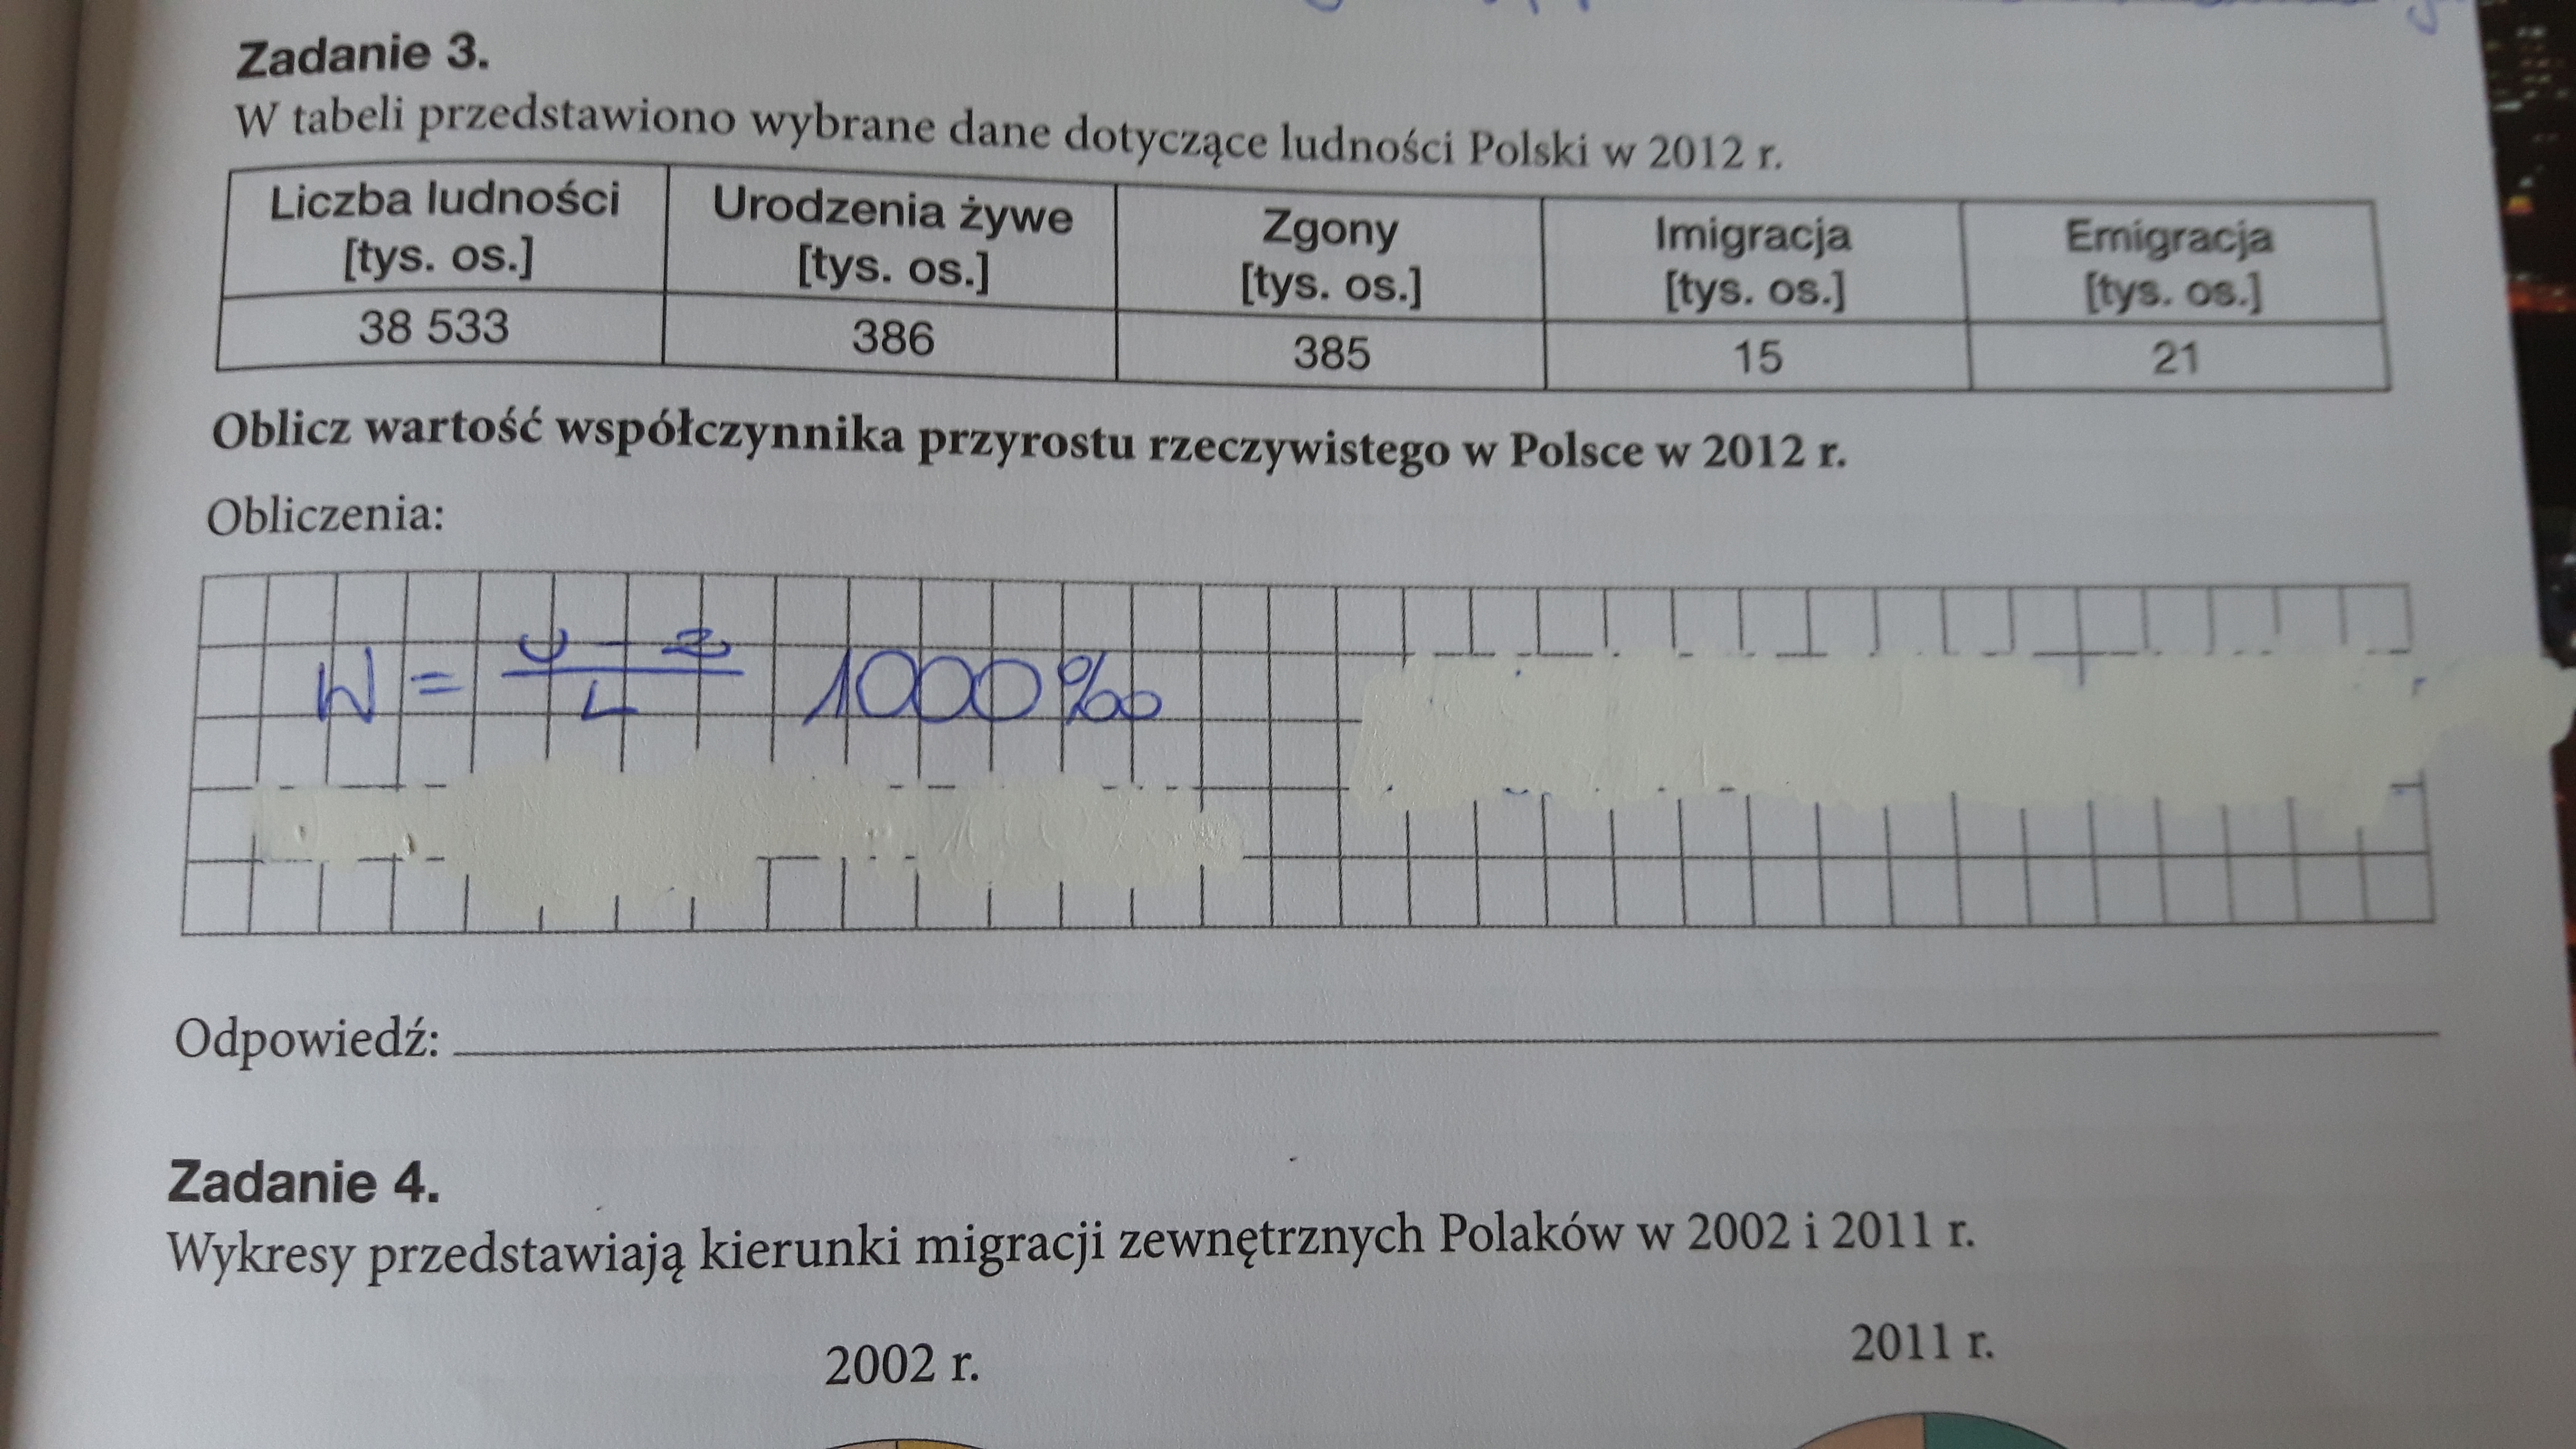 Zadanie 3.
W tabeli przedstawiono wybrane dane dotyczące ludności Polski w 2012 r.
Liczba ludności [tys. os.] Urodzenia żywe [tys. os.] Zgony [tys. os.] Imigracja [tys. os.] Emigracja [tys. os.]
38 533 386 385 15 21
Oblicz wartość współczynnika przyrostu rzeczywistego w Polsce w 2012 r.
Obliczenia:
W = U - Z / L 1000‰
Odpowiedź:
Zadanie 4.
Wykresy przedstawiają kierunki migracji zewnętrznych Polaków w 2002 i 2011 r.
2002 r. 2011 r.